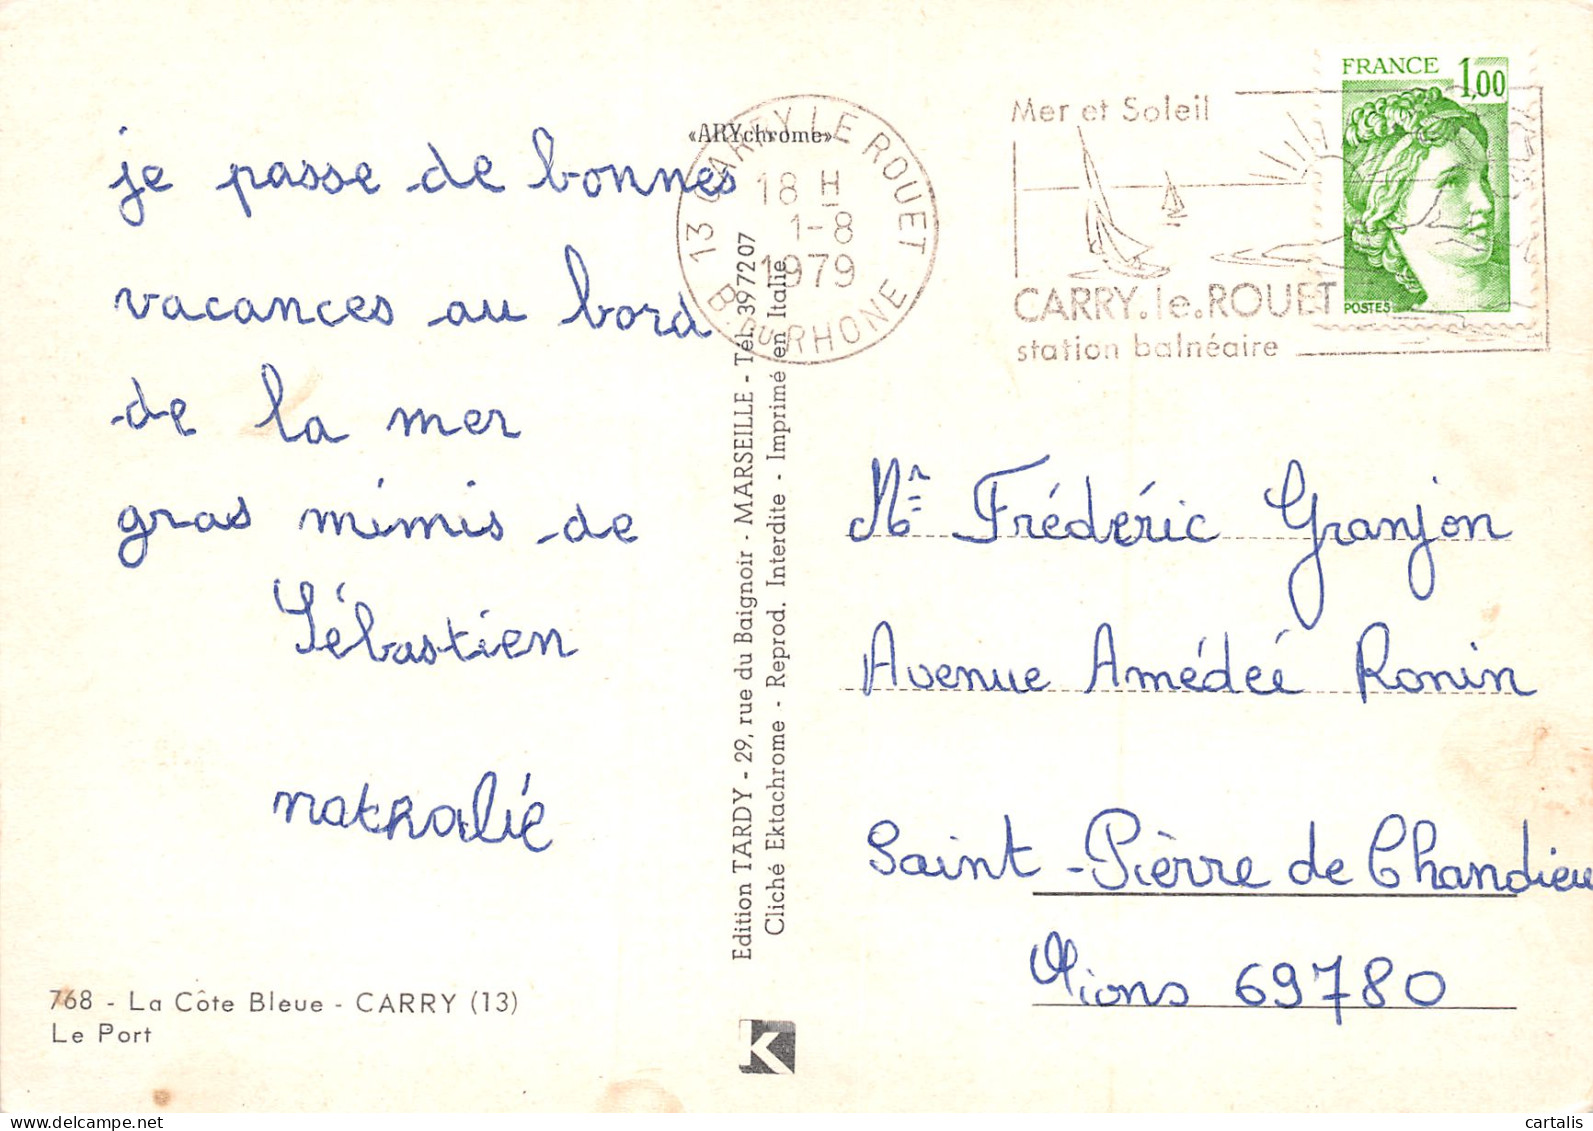 je passe de bonnes
vacances au bord
de la mer
gras mimis de
Sébastien
nathalie
768 - La Côte Bleue - CARRY (13)
Le Port
«ARYchrome»
Edition TARDY - 29, rue du Baignoir - MARSEILLE - Tél. 397207
Cliché Ektachrome - Reprod. Interdite - Imprimé en Italie
K
13 CARRY LE ROUET
18 H
1-8
1979
B. DU RHONE
Mer et Soleil
CARRY.le.ROUET
station balnéaire
FRANCE 1,00
POSTES
Mr Frédéric Granjon
Avenue Amédée Ronin
Saint-Pierre de Chandieu
Mions 69780
cartalis